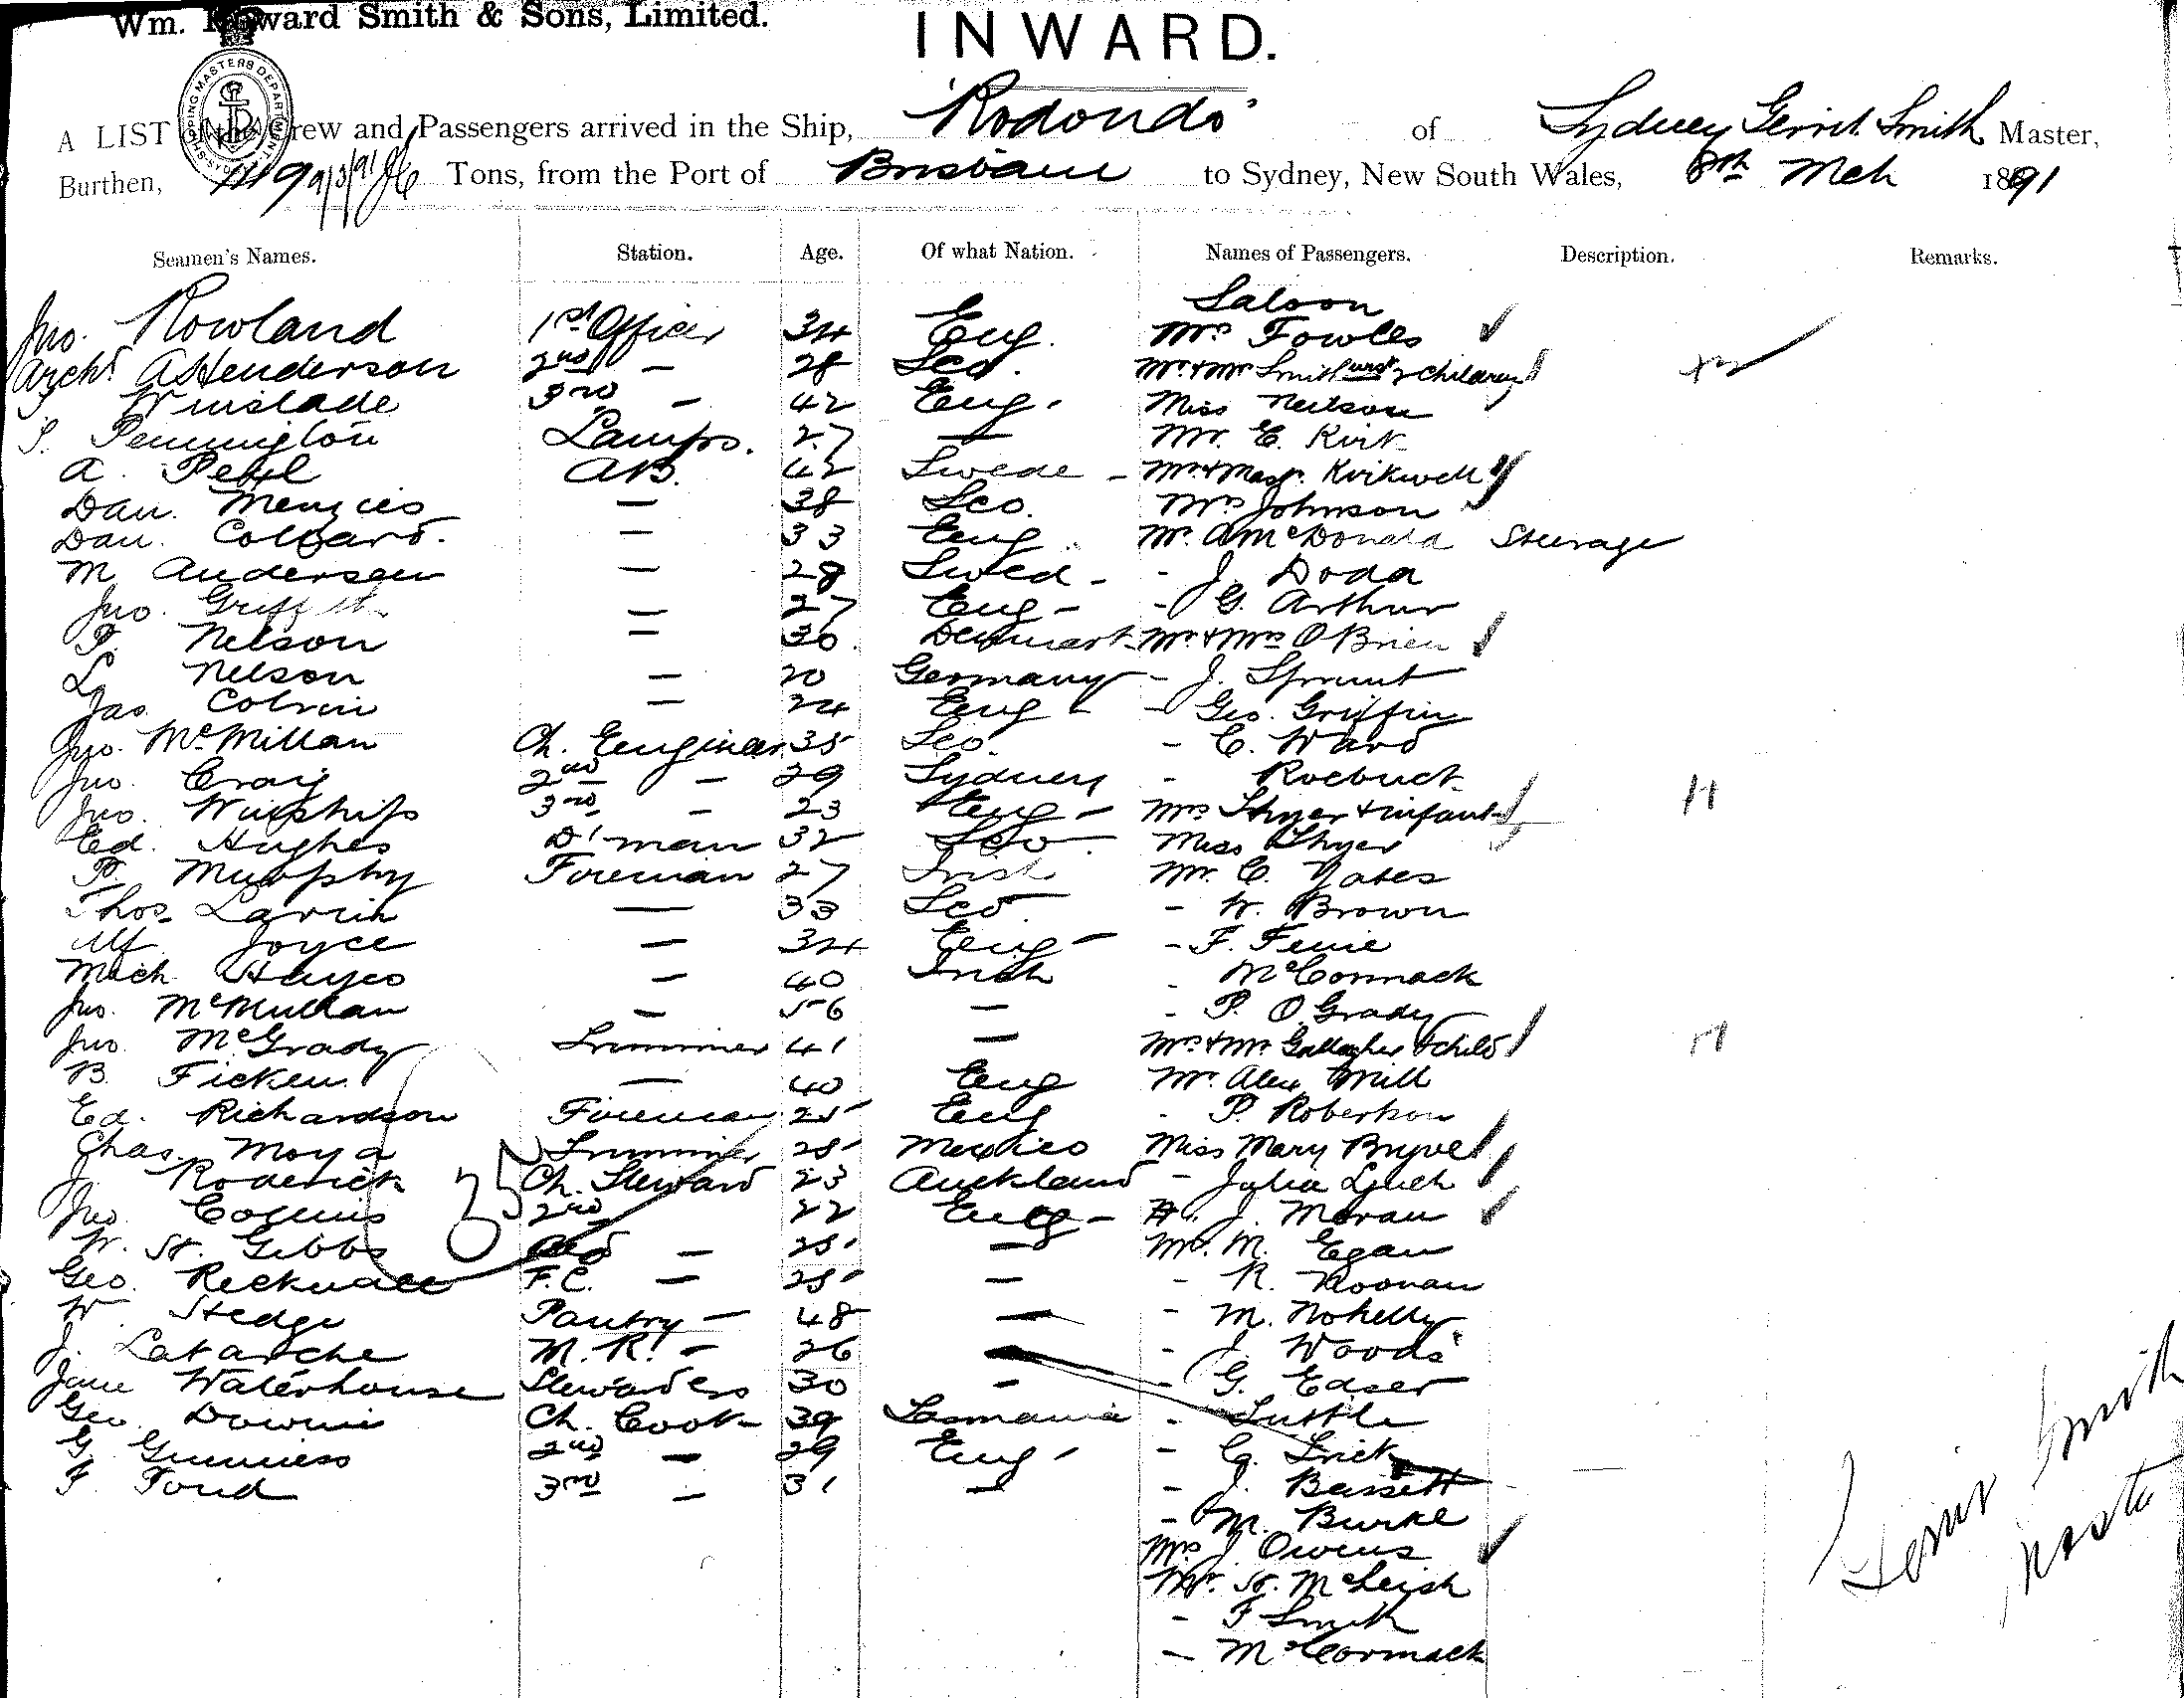 Wm. Howard Smith & Sons, Limited.
INWARD.
SHIPPING MASTERS DEPARTMENT
A LIST of the Crew and Passengers arrived in the Ship, "Rodondo" of Sydney Gerrit Smith Master,
Burthen, 1119 9/3/91 Tons, from the Port of Brisbane to Sydney, New South Wales, 8th Mch 1891
Seamen's Names. Station. Age. Of what Nation. Names of Passengers. Description. Remarks.
Saloon
Jno. Rowland 1st Officer 34 Eng. Mrs Fowles
Archd. A Henderson 2nd — 28 Sco. Mr. & Mrs Smith and 2 children
Winslade 3rd — 42 Eng. Miss Neilson
S. Pennington Lamps. 27 — Mr. E. Kirk
A. A.B. 42 Swede - Mr & Mast. Kirkwell
Dan. Menzies — 38 Sco. Mrs Johnson
Dan. Collard. — 33 Eng. Mr. A McDonald Steerage
M Andersen — 28 Swed - - J. Dodd
Jno. Griffith — 27 Eng - - G. Arthur
P. Nelson — 30 Denmark Mr & Mrs O'Brien
L Nelson — 20 Germany - J. Sprunt
Jas. Colvin — 24 Eng - - Geo. Griffin
Jno. McMillan Ch. Engineer 35 Sco. - C. Ward
Jno. Craig 2nd — 29 Sydney - Roebuck
Jno. Winship 3rd — 23 Eng - Mrs Thyer & infant
Ed. Hughes D'man 32 Sco. Miss Thyer
P. Murphy Fireman 27 Irish Mr. C. Yates
Thos. Larkin — 33 Sco. - W. Brown
Alf Joyce — 34 Eng - - F. Fenie
Mich Hayes — 40 Irish - McCormack
Jno. McMullan — 56 — - P. O'Grady
Jno. McGrady Trimmer 41 — Mr & Mrs Gallagher & child
B. Ficken — 40 Eng Mr. Alex Mill
Ed. Richardson Fireman 25 Eng - P. Robertson
Chas. Moya Trimmer 25 Mexico Miss Mary Bryve
J. Roderick Ch. Steward 23 Auckland - Julia Lynch
Jno. Collins 2nd 22 Eng - J. Moran
W. H. Gibbs — 25 — Mr. M. Egan
Geo. Reckwall F.C. — 25 — - R. Noonan
W. Hedge Pantry — 48 — - M.
J. Latarche M. R. - 26 — - J. Woods
Jane Waterhouse Stewardess 30 — - G. Edser
Geo. Downie Ch. Cook 39 Tasmania - Tuttle
G. Guinness 2nd — 29 Eng - - C. Trick
F. Ford 3rd — 31 — - J. Bassett
- M. Burke
Mrs J. Owens
Mr. H. McLeish
- F Smith
- McCormack
35
Gerrit Smith
Master